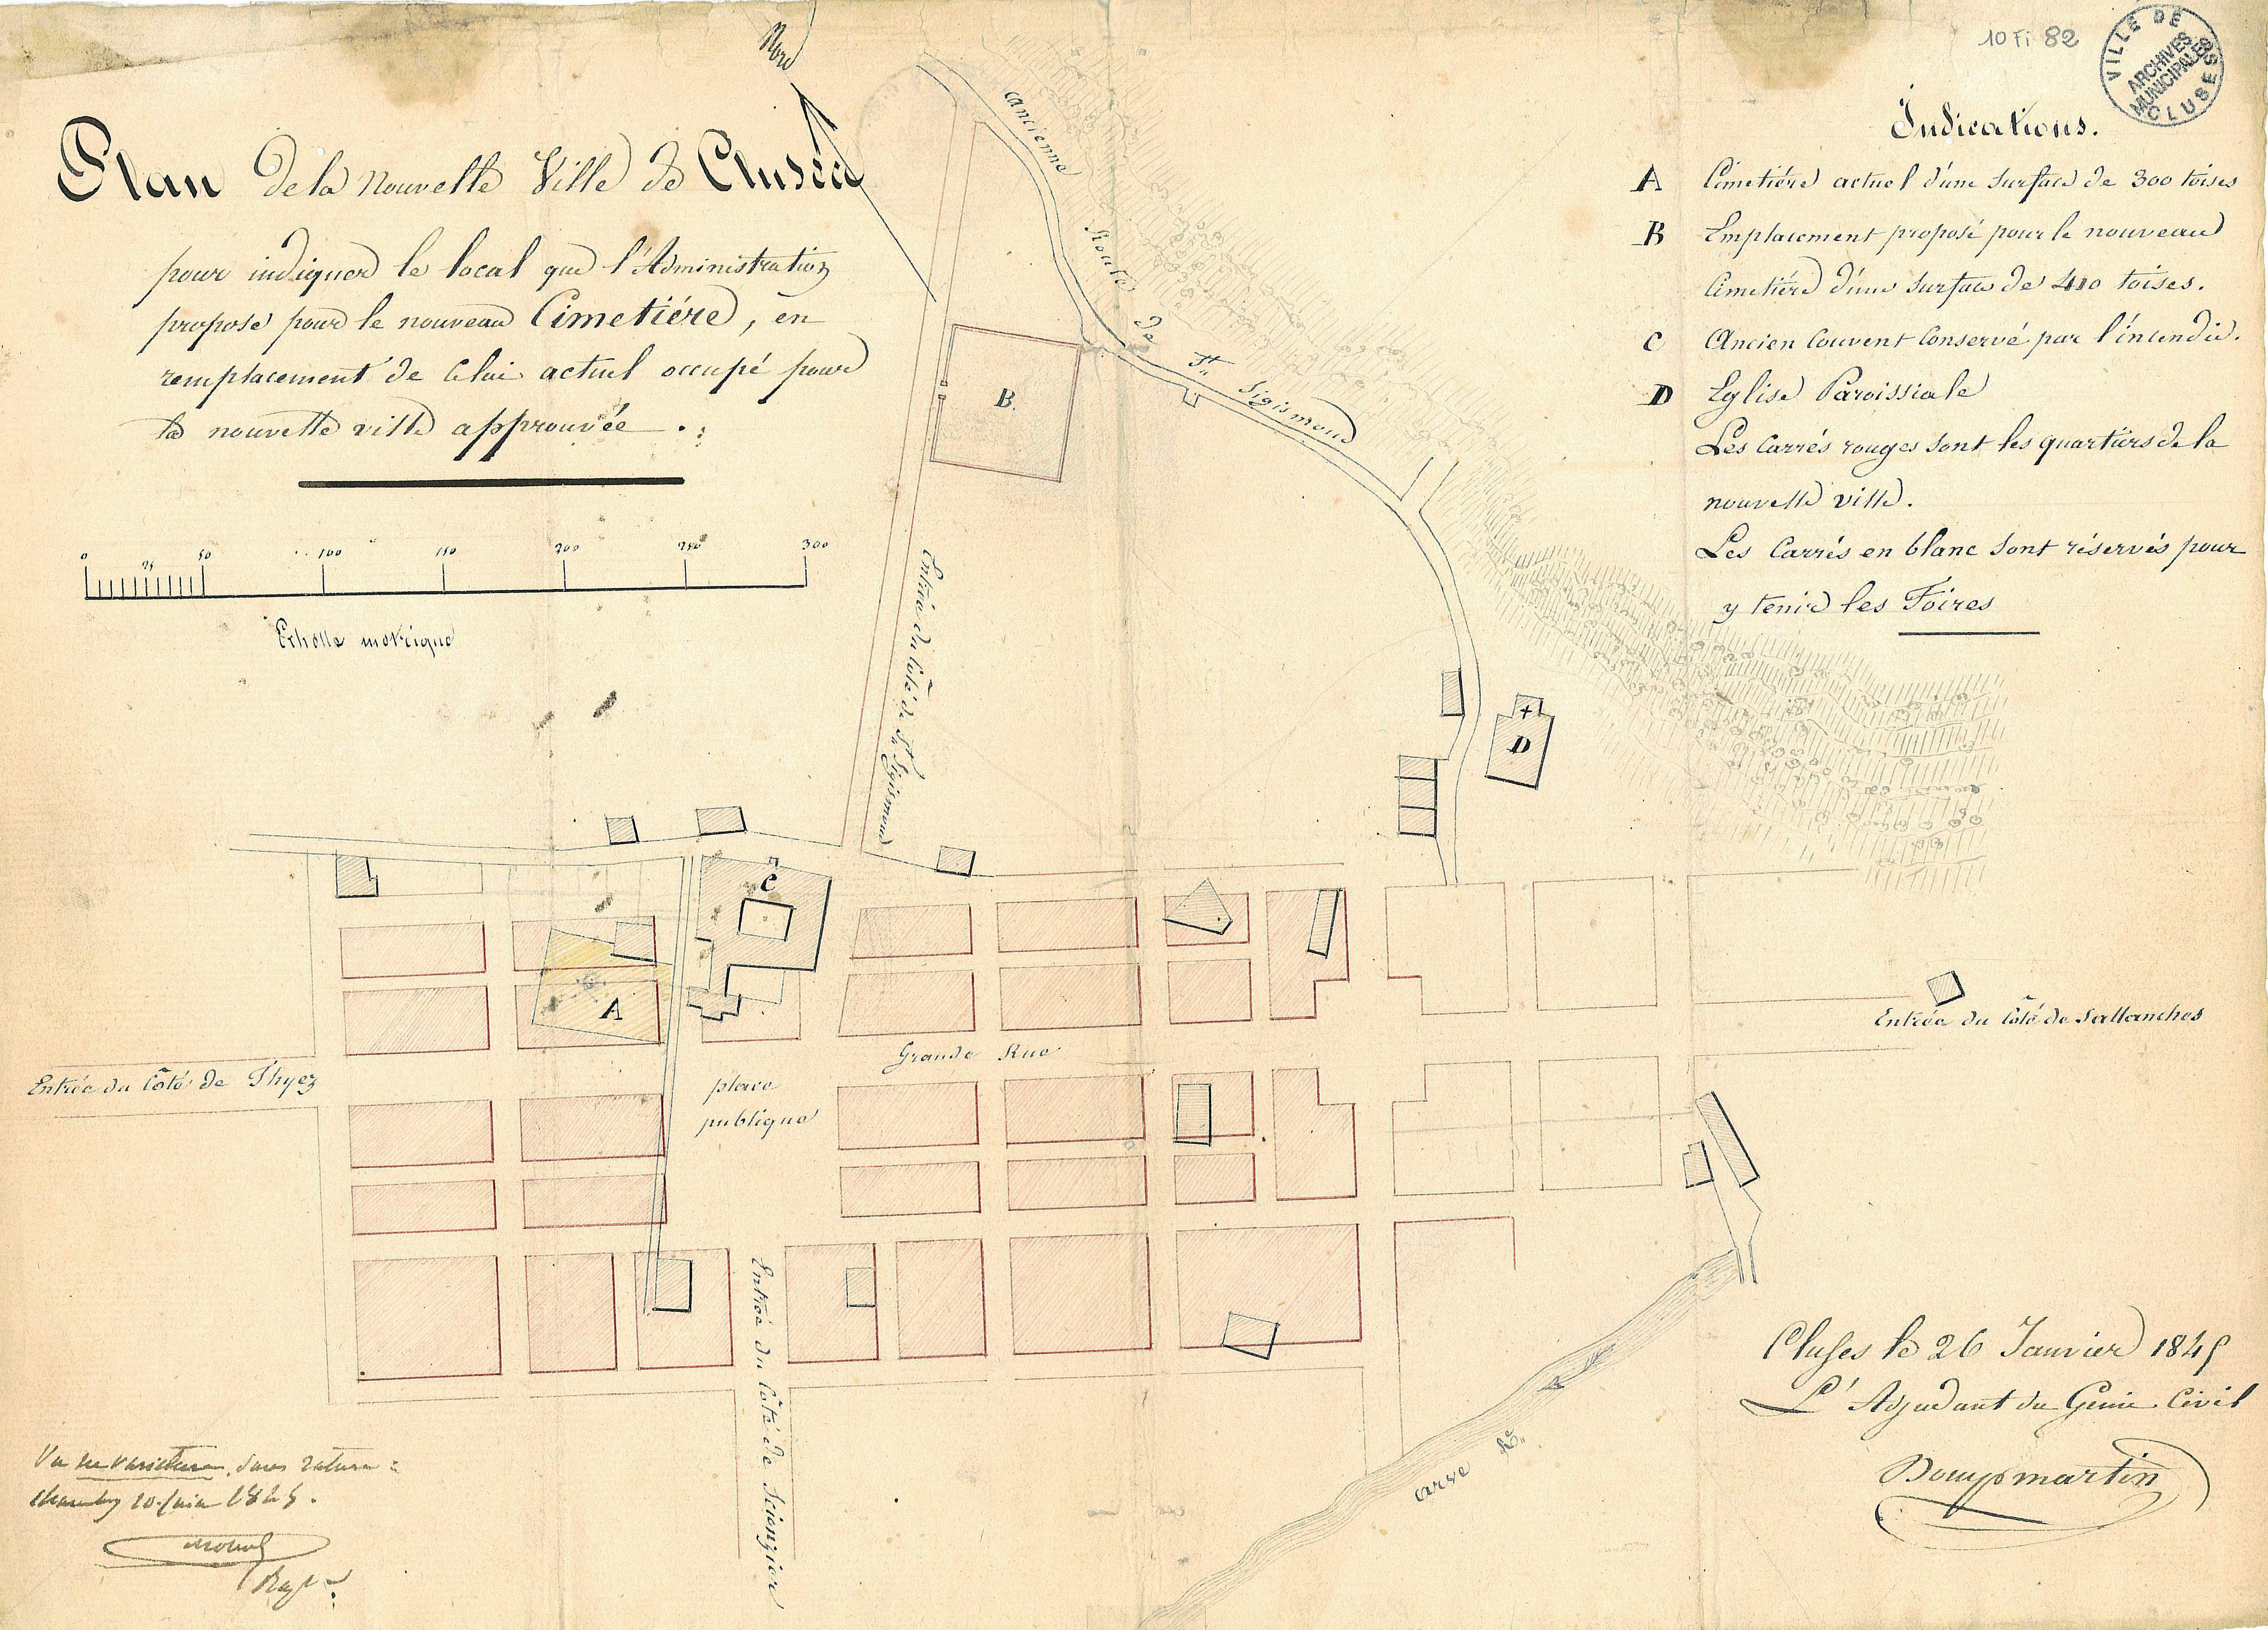 Nord
10 Fi 82
VILLE DE CLUSES
ARCHIVES
MUNICIPALES
Plan de la nouvelle Ville de Cluses
pour indiquer le local que l'Administration
propose pour le nouveau Cimetiére, en
remplacement de celui actuel occupé pour
la nouvelle ville approuvée.
0 25 50 100 150 200 250 300
Echelle metrique
Indications.
A Cimetiére actuel d'une surface de 300 toises
B Emplacement proposé pour le nouveau
Cimetiére d'une surface de 410 toises.
C Ancien Couvent Conservé par l'incendie.
D Eglise Paroissiale
Les Carrés rouges sont les quartiers de la
nouvelle ville.
Les Carrés en blanc sont réservés pour
y tenir les Foires
ancienne Route de St. Sigismond
B.
Entrée du Coté de St. Sigismond
D
C
A
Grande Rue
place
publique
Entrée du Côté de Thyez
Entrée du Côté de Sallanches
Entrée du Côté de Scionzier
arve Re.
Cluses le 26 Janvier 1845
L'Adjudant du Génie Civil
Dompmartin
Vu ne varietur, sans rature
10 Juin 1845.